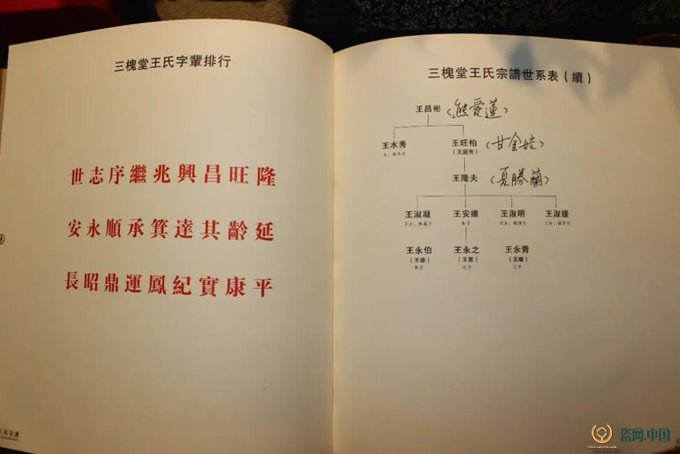 三槐堂王氏字輩排行
世志序繼兆興昌旺隆
安永順承箕達其齡延
長昭鼎運鳳紀寶康平
三槐堂王氏宗譜世系表(續)
王昌彬(熊愛蓮)
王水秀 王旺柏(甘金姣)
王隆夫(夏勝蘭)
王淑凝 王安維 王淑明 王淑媛
長子
王永伯 王永之 王永青
長子 次子 三子
瓷网.中国